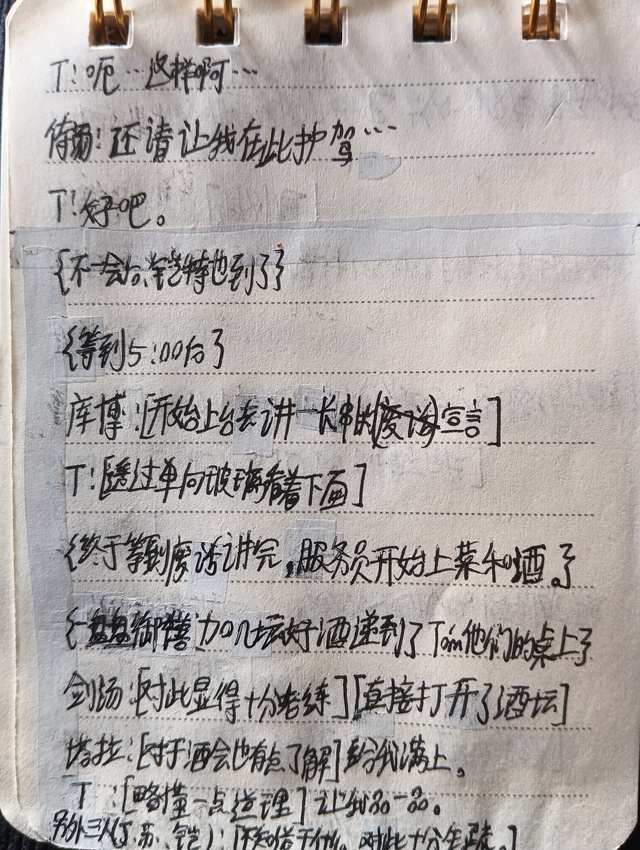 T:呃…这样啊…
侍扬:还请让我在此护驾…
T:好吧。
{不一会,铠特也到了}
{等到5:00后}
库博:[开始上台去讲一长串的(废话)宣言]
T:[透过单向玻璃看着下面]
{终于等到废话讲完,服务员开始上菜和酒。}
{一盘盘御膳加几坛好酒递到了Tom他们的桌上}
剑扬:[对此显得十分老练][直接打开了酒坛]
塔拉:[对于酒会也有点了解]给我满上。
T:[略懂一点道理]让我品一品。
另外三人(J、苏、铠):[不知道干什么,对此十分生疏。]